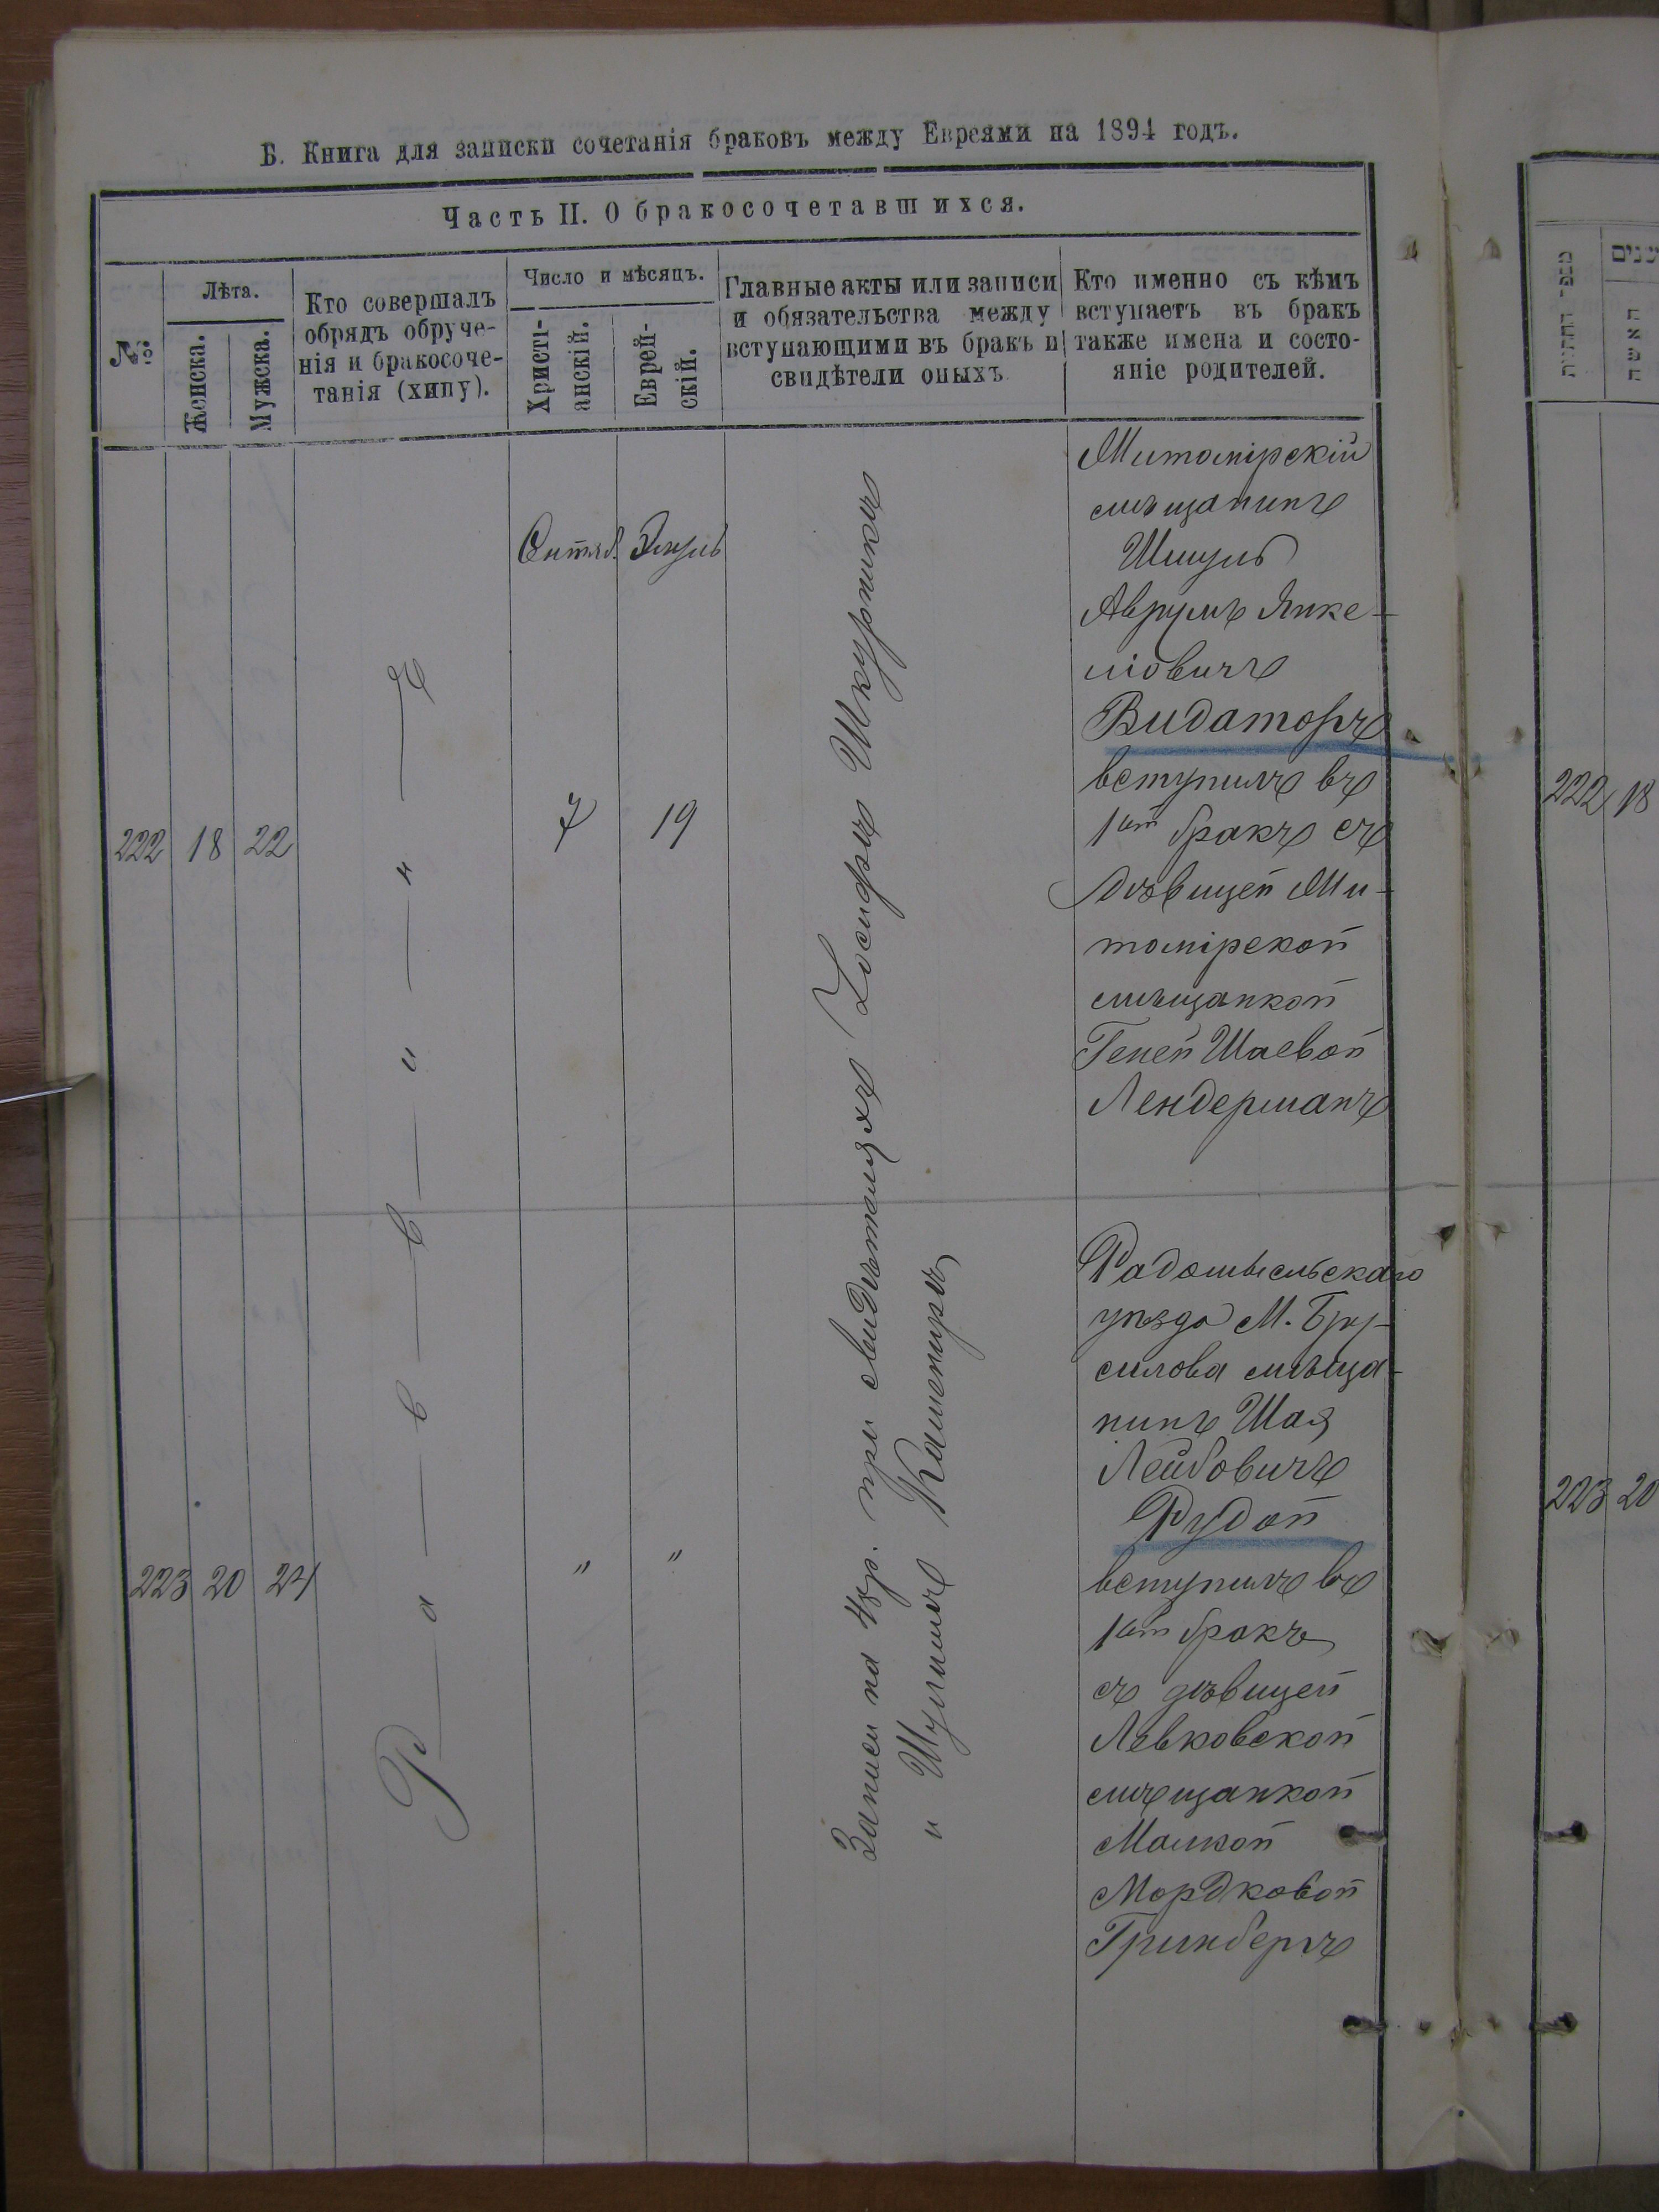 Б. Книга для записки сочетанія браковъ между Евреями на 1894 годъ.
Часть II. О бракосочетавшихся.
№
Лѣта.
Женска.
Мужска.
Кто совершалъ
обрядъ обруче-
нія и бракосоче-
танія (хипу).
Число и мѣсяцъ.
Христі-
анскій.
Еврей-
скій.
Главные акты или записи
и обязательства между
вступающими въ бракъ и
свидѣтели оныхъ
Кто именно съ кѣмъ
вступаетъ въ бракъ
также имена и состо-
яніе родителей.
222
18
22
Сентяб.
Элулъ
7
19
Р—а—в—в—и—н—ъ
Записи на 48р. при свидѣтеляхъ Іосифѣ Шкурникѣ
и Шулимѣ Каменирѣ
Житомірскій
мѣщанинъ
Шмуль
Аврумъ Янке-
лiовичъ
Видаторъ
вступилъ въ
1ый бракъ съ
дѣвицей Жи-
томірской
мѣщанкой
Геней Шаевой
Лендерманъ
223
20
24
"
"
Радомысльскаго
уѣзда М. Бру-
силова мѣща-
нинъ Шая
Лейбовичъ
Рудой
вступилъ въ
1ый бракъ
съ дѣвицей
Левковской
мѣщанкой
Малкой
Мордковой
Гринбергъ
מספר החתנות
שנים
האשה
222
18
223
20